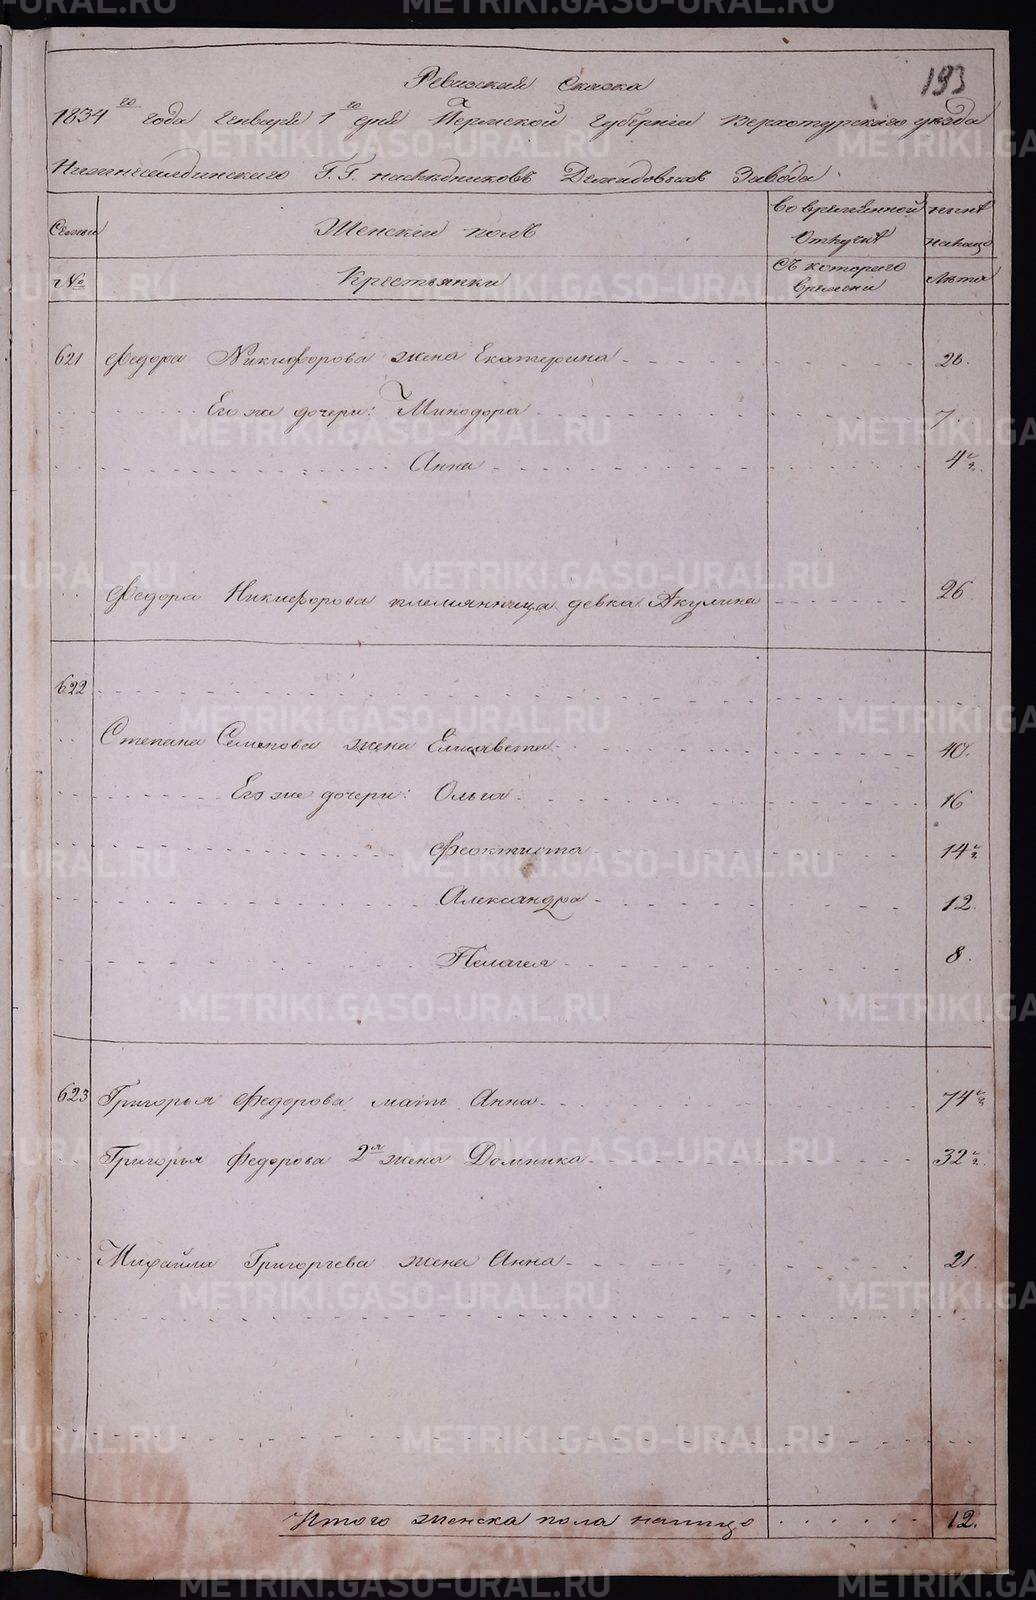 193
Ревизская Сказка
1834го года Генваря 1го дня Пермской Губернии Верхотурскаго уезда
Нижнесалдинскаго Г.Г. наследниковъ Демидовыхъ Завода.
Семьи
Женский полъ
Во временной отлучке
ныне налицо
№
Крестьянки
Съ котораго времени
Лета
621 Федора Никифорова жена Екатерина 26.
Его же дочери: Минодора 7.
Анна 4½.
Федора Никифорова племянница девка Акулина 26.
622
Степана Семенова жена Елисавета 40.
Его же дочери: Ольга 16
Феоктиста 14½
Александра 12.
Пелагея 8.
623 Григорья Федорова мать Анна 74½
Григорья Федорова 2я жена Домника 32½.
Михайла Григорьева жена Анна 21
Итого женска пола налицо 12.
METRIKI.GASO-URAL.RU